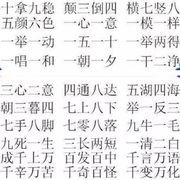 十拿九稳 颠三倒四 横七竖八
五颜六色 一心一意 一模一样
一举一动 一五一十 一举两得
一唱一和 一朝一夕 一干二净
三心二意 四通八达 五湖四海
朝三暮四 七上八下 举一反三
七手八脚 七零八落 九牛一毛
九死一生 三长两短 一清二白
成千上万 百发百中 千言万语
千辛万苦 千奇百怪 千变万化